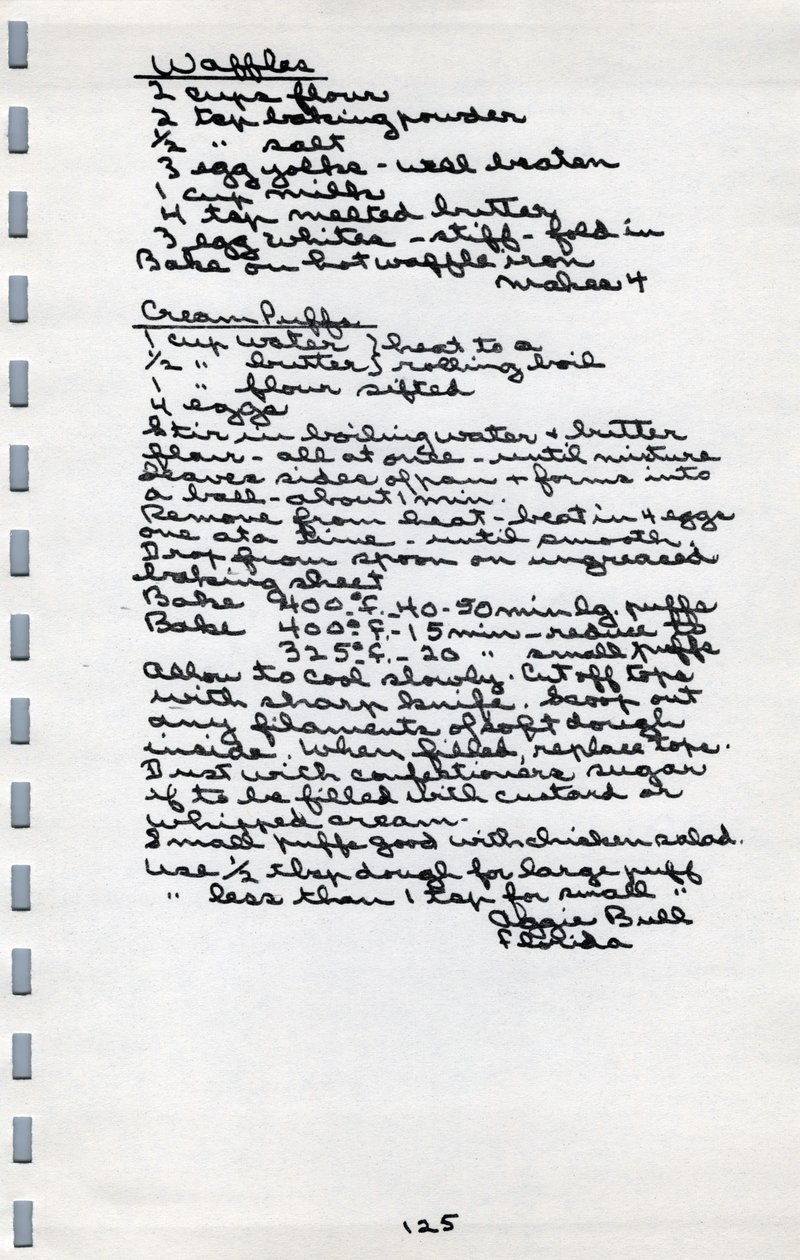 Waffles
2 cups flour
2 tsp baking powder
½ " salt
3 egg yolks - well beaten
1 cup milk
4 tsp melted butter
3 egg whites - stiff - fold in
Bake on hot waffle iron
makes 4
Cream Puffs
1 cup water } heat to a
½ " butter } rolling boil
1 " flour sifted
4 eggs
Stir in boiling water + butter
flour - all at once - until mixture
leaves sides of pan + forms into
a ball - about 1 min.
Remove from heat - beat in 4 eggs
one at a time - until smooth.
Drop from spoon on ungreased
baking sheet
Bake 400° F. - 40-50 min lg. puffs
Bake 400° F. - 15 min - reduce to
325° F. - 20 " small puffs
Allow to cool slowly. Cut off tops
with sharp knife. Scoop out
any filaments of soft dough
inside. When filled, replace tops.
Dust with confectioners sugar
if to be filled with custard or
whipped cream.
Small puffs good with chicken salad.
Use ½ tbsp dough for large puff
" less than 1 tsp for small "
Aggie Bull
Florida
125